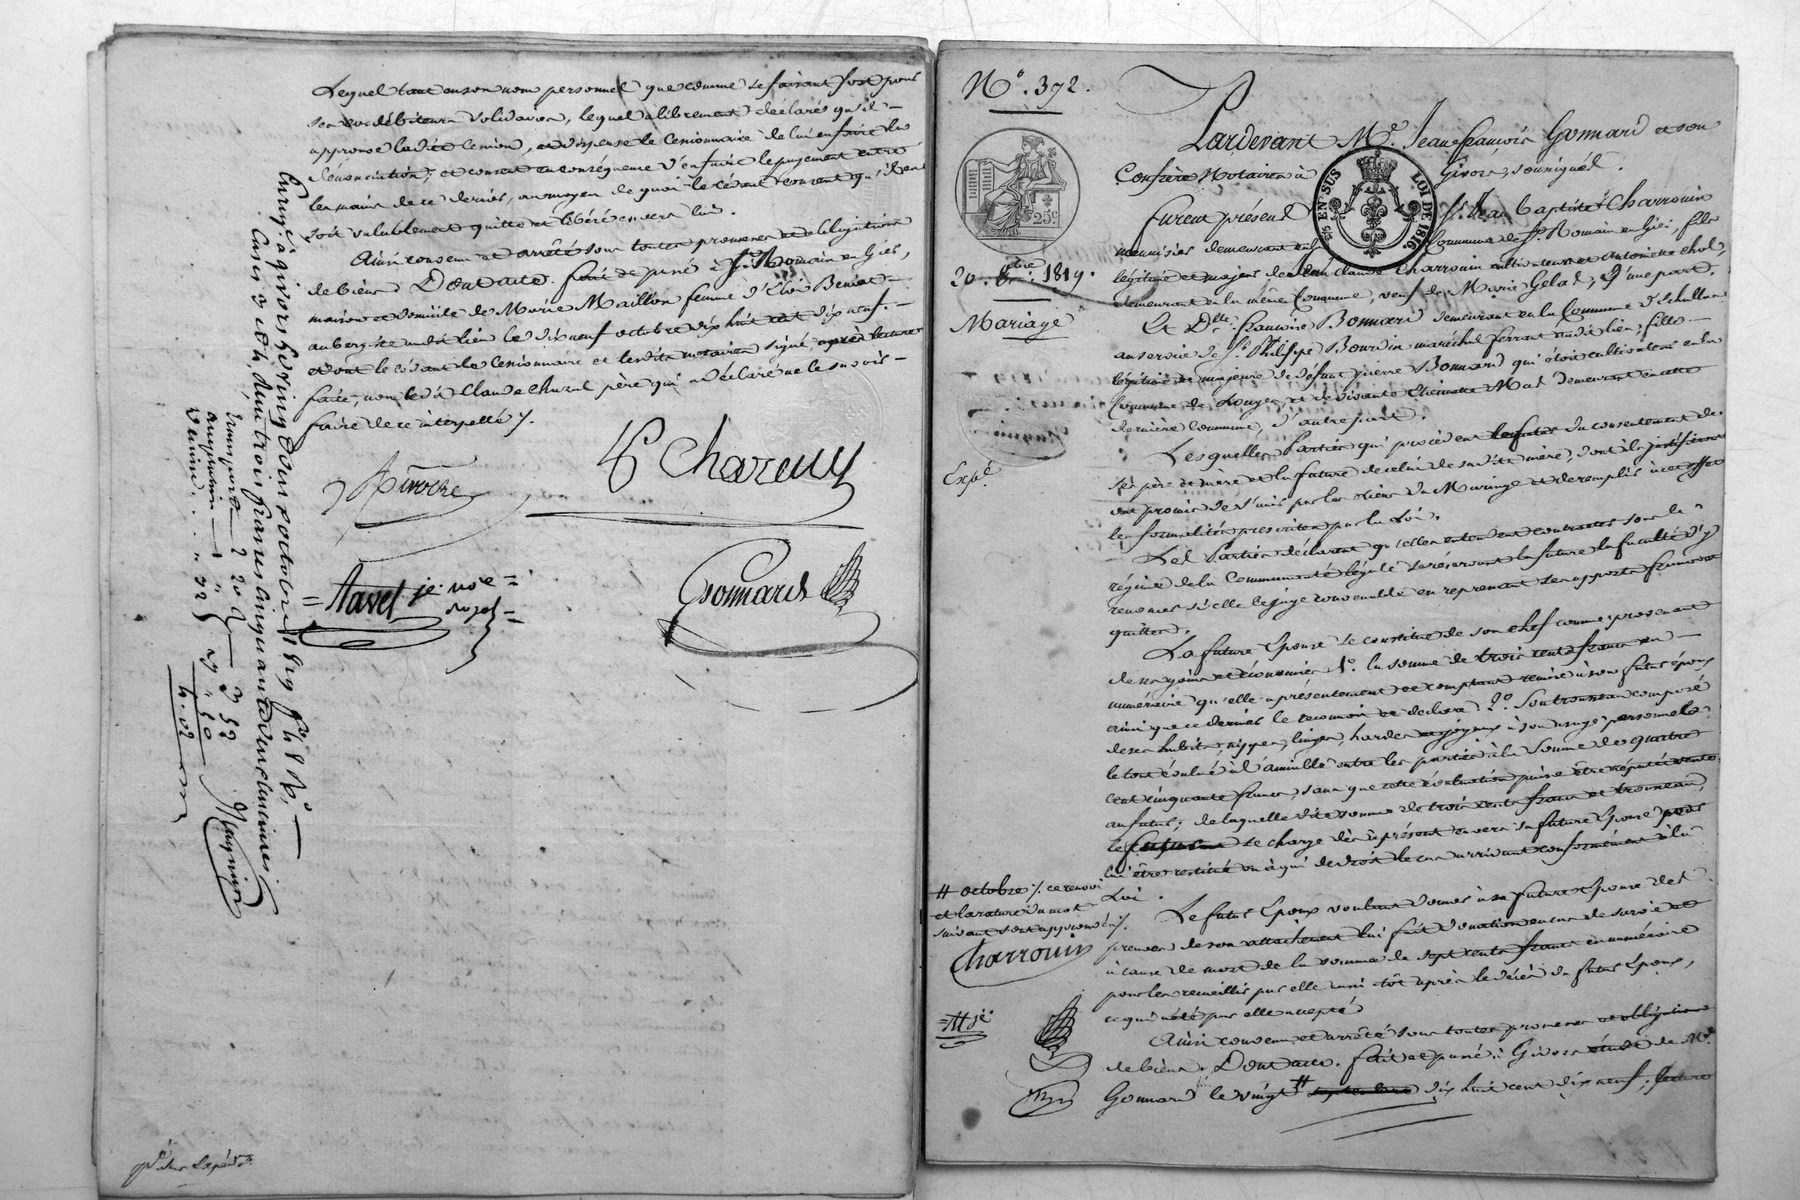 Lequel tant en son nom personnel que comme se faisant fort pour
son codébiteur solidaire, lequel a librement déclaré qu'il
approuve ladite cession, et dispense le cessionnaire de lui en faire la
dénonciation, et consent en conséquence d'en faire le payement entre
les mains de ce dernier, au moyen de quoi le cédant consent qu'il en
soit valablement quitte et libéré envers lui.
Ainsi convenu et arrêté sous toutes promesses et obligations
de biens Dont acte. fait et passé à St. Romain en Giés,
maison et domicile de Marie Maillon femme d'Eloi Beniat
aubergiste audit lieu le dix neuf octobre dix huit cent dix neuf.
et ont le cédant le cessionnaire et lesdits notaires signé, après lecture
faite, non ledit Claude père qui a déclaré ne le savoir
faire de ce interpellé ⁒
Gonnard
Enreg. à Givors le vingt octobre 1819
Reçu trois francs cinquante deux centimes
4.02
N°. 372.
25c
EN SUS
LOI DE 1816.
20. 8bre. 1819.
Mariage
Expé.
Pardevant Me. Jean François Gonnard et son
Confrère Notaires à Givors, soussignés.
furent présent Sr. Jean Baptiste Charrouin
demeurant en Commune de St. Romain en Giés, fils
légitime et majeur de Jean Claude Charrouin cultivateur et Antoinette
demeurant en la même Commune, veuf de Marie Gelas, d'une part.
Et Dlle. françoise Bonnard demeurant en la Commune d'Echallas
au service de Sr. Philippe Bourdin maréchal ferrant audit lieu, fille
légitime et majeure de défunt pierre Bonnard qui étoit cultivateur en la
Commune de Longes, et de vivante Etiennette Mas demeurant en cette
dernière Commune, d'autre part.
Lesquelles Parties qui procèdent du consentement de
ses père et mère et la future de celui de sadite mère, dont ils justifieront
ont promis de s'unir par les liens du Mariage et de remplir à cet effet
les formalités prescrites par la Loi.
Les Parties déclarent qu'elles entendent contracter sous le
régime de la Communauté légale se réservant la future la faculté d'y
renoncer si elle le juge convenable en reprenant ses apports francs et
quittes.
La future Epouse se constitue de son chef comme provenant
de ses gains et économies 1°. la somme de trois cents francs en
numéraire qu'elle a présentement et comptant remise à son futur époux
ainsi que ce dernier le reconnoit et déclare. 2°. Son trousseau composé
de ses habits, nippes, linges, hardes et joyaux à son usage personnel
le tout évalué à l'amiable entre les parties à la Somme de quatre
cent cinquante francs, sans que cette évaluation puisse être réputée vente
au futur; de laquelle dite somme de trois cents francs et trousseau,
le se charge dès à présent envers sa future Epouse pour
lui être restitué ou à qui de droit le cas arrivant conformément à la
Loi.
Le futur Epoux voulant donner à sa future Epouse des
preuves de son attachement lui fait donation en cas de survie et
à cause de mort de la somme de sept cents francs en numéraire
pour les recueillir par elle aussi-tôt après le décès du futur Epoux,
ce qui a été par elle accepté
Ainsi convenu et arrêté sous toutes promesses et obligations
de biens. Dont acte. fait et passé à Givors étude de Me.
Gonnard le vingt # dix huit cent dix neuf, lecture
# octobre ⁒ ce renvoi
et la rature du mot
suivant sont approuvés ⁒
Charrouin